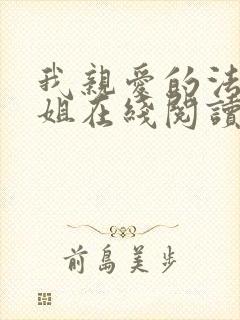 我親愛的法
姐在綫閱讀
前島美步